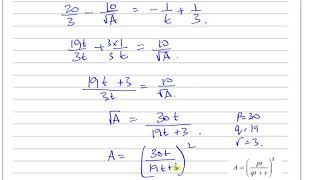 20/3 - 10/√A = -1/t + 1/3
19t/3t + 3×1/3t = 10/√A.
19t + 3/3t = 10/√A
√A = 30t/19t+3.
P=30
q=19
r=3.
A = (30t/19t+3)²
A = (pt/qt + r)³